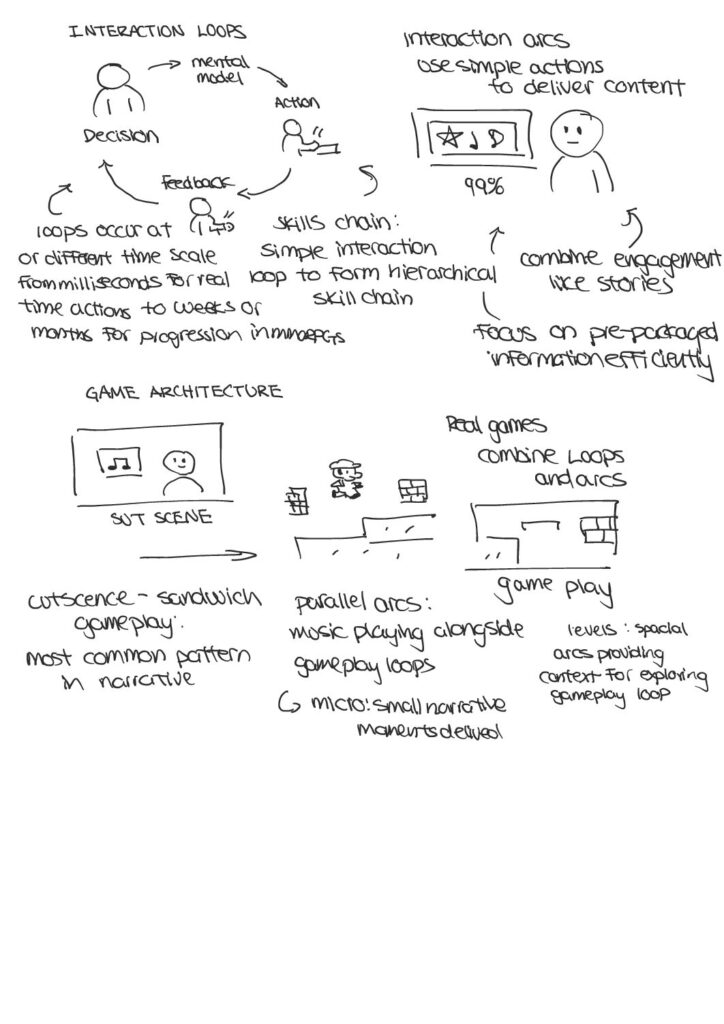 INTERACTION LOOPS
mental
model
Action
Decision
Feedback
loops occur at
or different time scale
from milliseconds for real
time actions to weeks or
months for progression in MMORPGs
skills chain:
simple interaction
loop to form hierarchical
skill chain
interaction arcs
use simple actions
to deliver content
99%
combine engagement
like stories
focus on pre-packaged
information efficiently
GAME ARCHITECTURE
SUT SCENE
cutscence - sandwich
gameplay:
most common pattern
in narrative
parallel arcs:
music playing alongside
gameplay loops
micro: small narrative
moments delived
Real games
combine loops
and arcs
game play
levels: spacial
arcs providing
context for exploring
gameplay loop